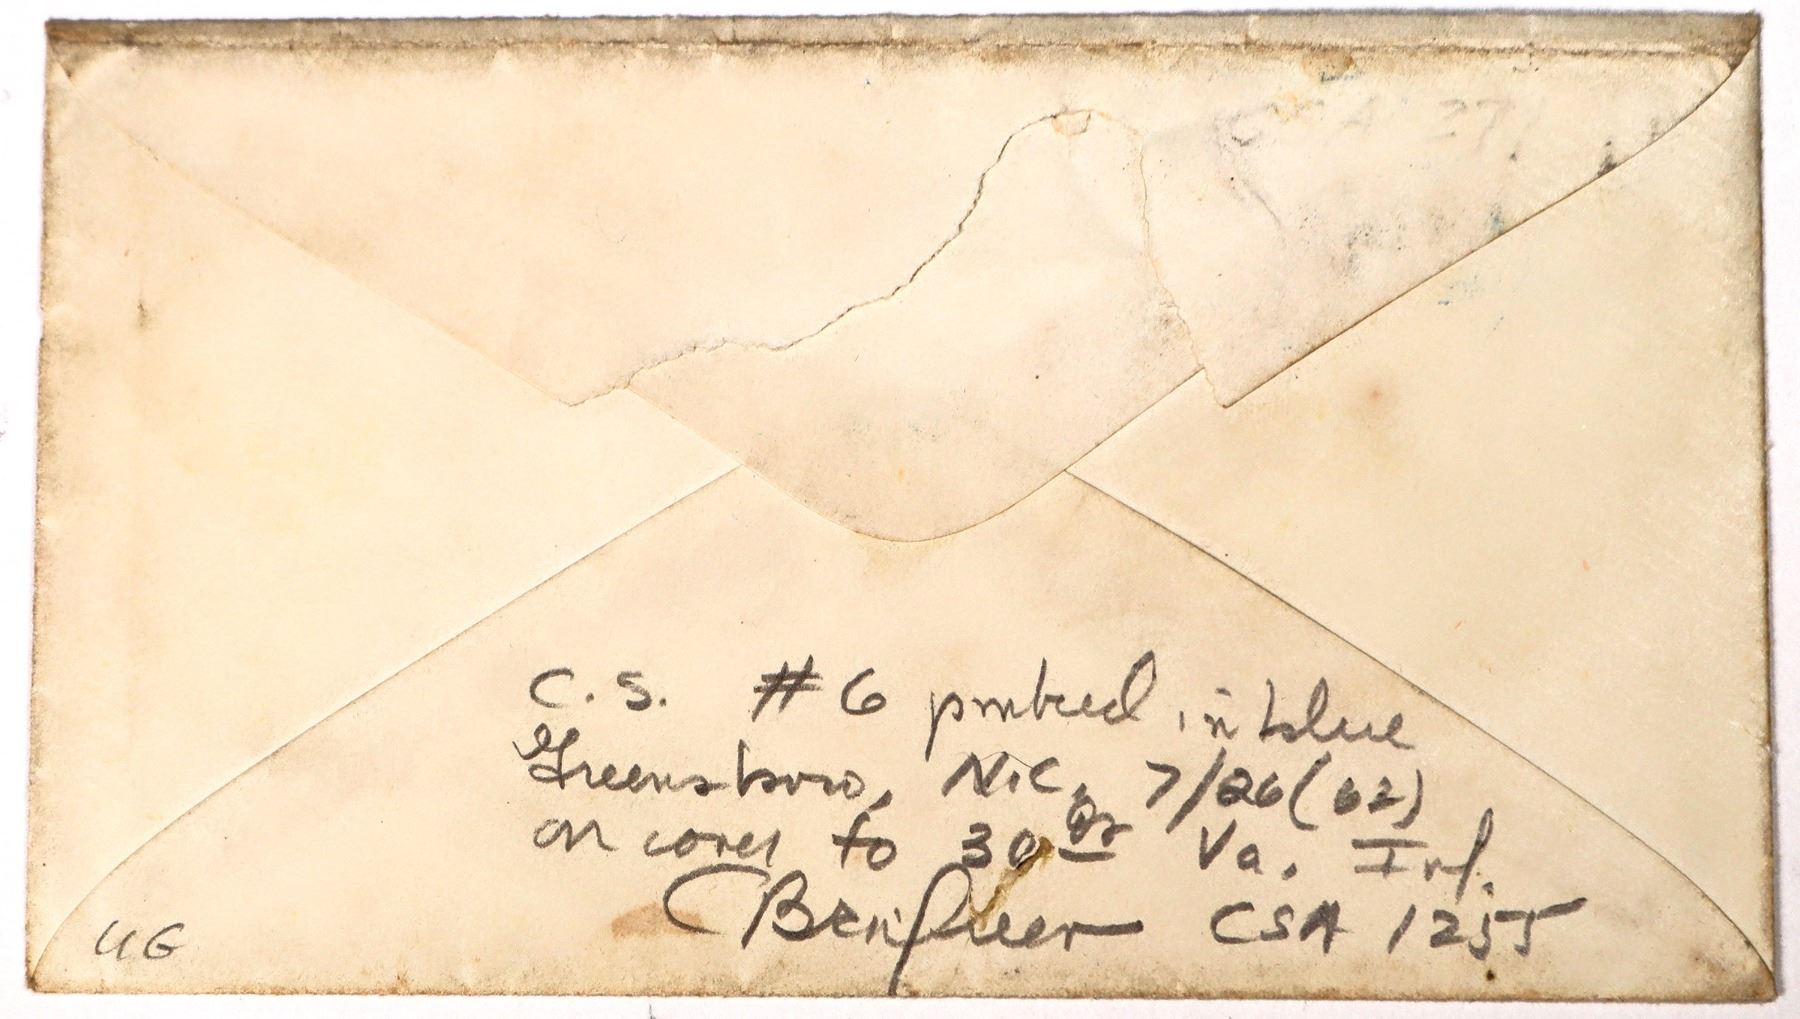 27
C.S. #6 pmtred in blue
Greensboro, N.C. 7/26 (62)
on cover to 30th Va. Inf.
CSA 1255
UG